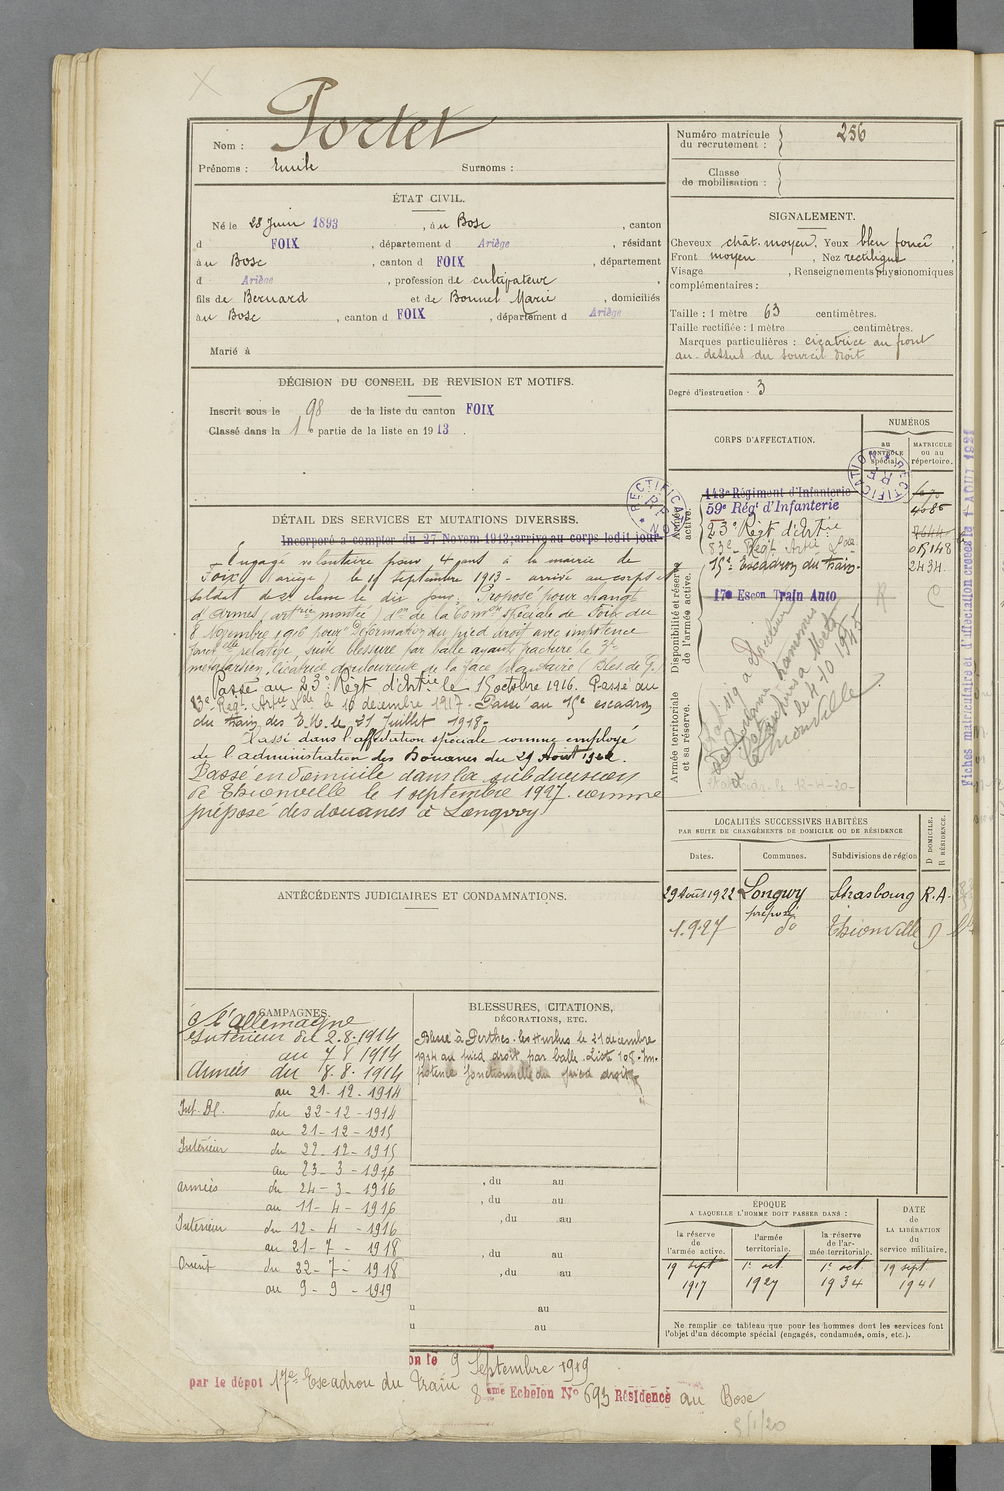 Portet
Nom :
Prénoms : Emile Surnoms :
Numéro matricule du recrutement : 256
Classe de mobilisation :
ÉTAT CIVIL.
Né le 28 Juin 1893, à u Bosc, canton
d FOIX, département d Ariège, résidant
à u Bosc, canton d FOIX, département
d Ariège, profession de cultivateur
fils de Bernard et de Bonnel Marie, domiciliés
à u Bosc, canton d FOIX, département d Ariège
Marié à
SIGNALEMENT.
Cheveux chât. moyen, Yeux bleu foncé,
Front moyen, Nez rectiligne
Visage, Renseignements physionomiques
complémentaires :
Taille : 1 mètre 63 centimètres.
Taille rectifiée : 1 mètre centimètres.
Marques particulières : cicatrice au front
au-dessus du sourcil droit
Degré d'instruction . 3
DÉCISION DU CONSEIL DE REVISION ET MOTIFS.
Inscrit sous le 98 de la liste du canton FOIX
Classé dans la 1e partie de la liste en 1913.
CORPS D'AFFECTATION.
NUMÉROS
AU CONTRÔLE spécial.
MATRICULE ou au répertoire.
RECTIFICATION R.F.
RECTIFICATION R.F.
Armée active.
Disponibilité et réserve de l'armée active.
Armée territoriale et sa réserve.
143e Régiment d'Infanterie
59e Régt d'Infanterie 4085
23e Régt d'Artie
83e Régt Artie Lde 015148
15e Escadron du train. 2434.
17e Escon Train Auto
le 4-10 1925
à Thionville
Fiches matriculaire et d'affectation créées le 1 AOUT 1921
DÉTAIL DES SERVICES ET MUTATIONS DIVERSES.
Incorporé à compter du 27 Novem 1913; arrivé au corps ledit jour
Engagé volontaire pour 4 ans à la mairie de
Foix (ariège) le 19 septembre 1913 - arrivé au corps et
soldat de 2e classe le dix jours. Proposé pour changt
d'armes (artrie montée) don de la Common spéciale de Foix du
8 Novembre 1916 pour "Déformation du pied droit avec impotence
fonctelle relative, suite blessure par balle ayant fracturé le 3e
métatarsien, cicatrice douloureuse de la face plantaire (Bles de G.)
Passé au 23e Régt d'Artie le 15 octobre 1916. Passé au
83e Régt Artie Lde le 16 décembre 1917. Passé au 15e escadron
du train des E.M. le 21 Juillet 1918.
Classé dans l'affectation spéciale comme employé
de l'administration des Douanes du 29 Août 1922.
Passé en domicile dans la subdivision
de Thionville le 1 septembre 1927. comme
préposé des douanes à Longwy
ANTÉCÉDENTS JUDICIAIRES ET CONDAMNATIONS.
LOCALITÉS SUCCESSIVES HABITÉES
PAR SUITE DE CHANGEMENTS DE DOMICILE OU DE RÉSIDENCE
Dates. Communes. Subdivisions de région D DOMICILE. R RÉSIDENCE.
29 Août 1922 Longwy Strasbourg R.A.
préposé
1.9.27 do Thionville D
CAMPAGNES.
C/ l'Allemagne
Intérieur du 2.8.1914
au 7 8 1914
Armées du 8.8.1914
au 21-12-1914
Int. Bl. du 22-12-1914
au 21-12-1915
Intérieur du 22-12-1915
au 23-3-1916
armées du 24-3-1916
au 11-4-1916
Intérieur du 12-4-1916
au 21-7-1918
Orient du 22-7-1918
au 9-9-1919
BLESSURES, CITATIONS,
DÉCORATIONS, ETC.
Blessé à Perthes-les-Hurlus le 21 décembre
1914 au pied droit par balle. Liste 108. Im-
potence fonctionnelle du pied droit
, du au
, du au
, du au
, du au
, du au
u au
u au
ÉPOQUE
A LAQUELLE L'HOMME DOIT PASSER DANS :
la réserve de l'armée active.
l'armée territoriale.
la réserve de l'armée territoriale.
DATE de LA LIBÉRATION du service militaire.
19 sept 1917
1e oct. 1927
1e oct 1934
19 sept 1941
Ne remplir ce tableau que pour les hommes dont les services font
l'objet d'un décompte spécial (engagés, condamnés, omis, etc.).
on le 9 Septembre 1919
par le dépot 17e Escadron du Train 8ème Echelon No 693 Résidence au Bosc
5/1/20